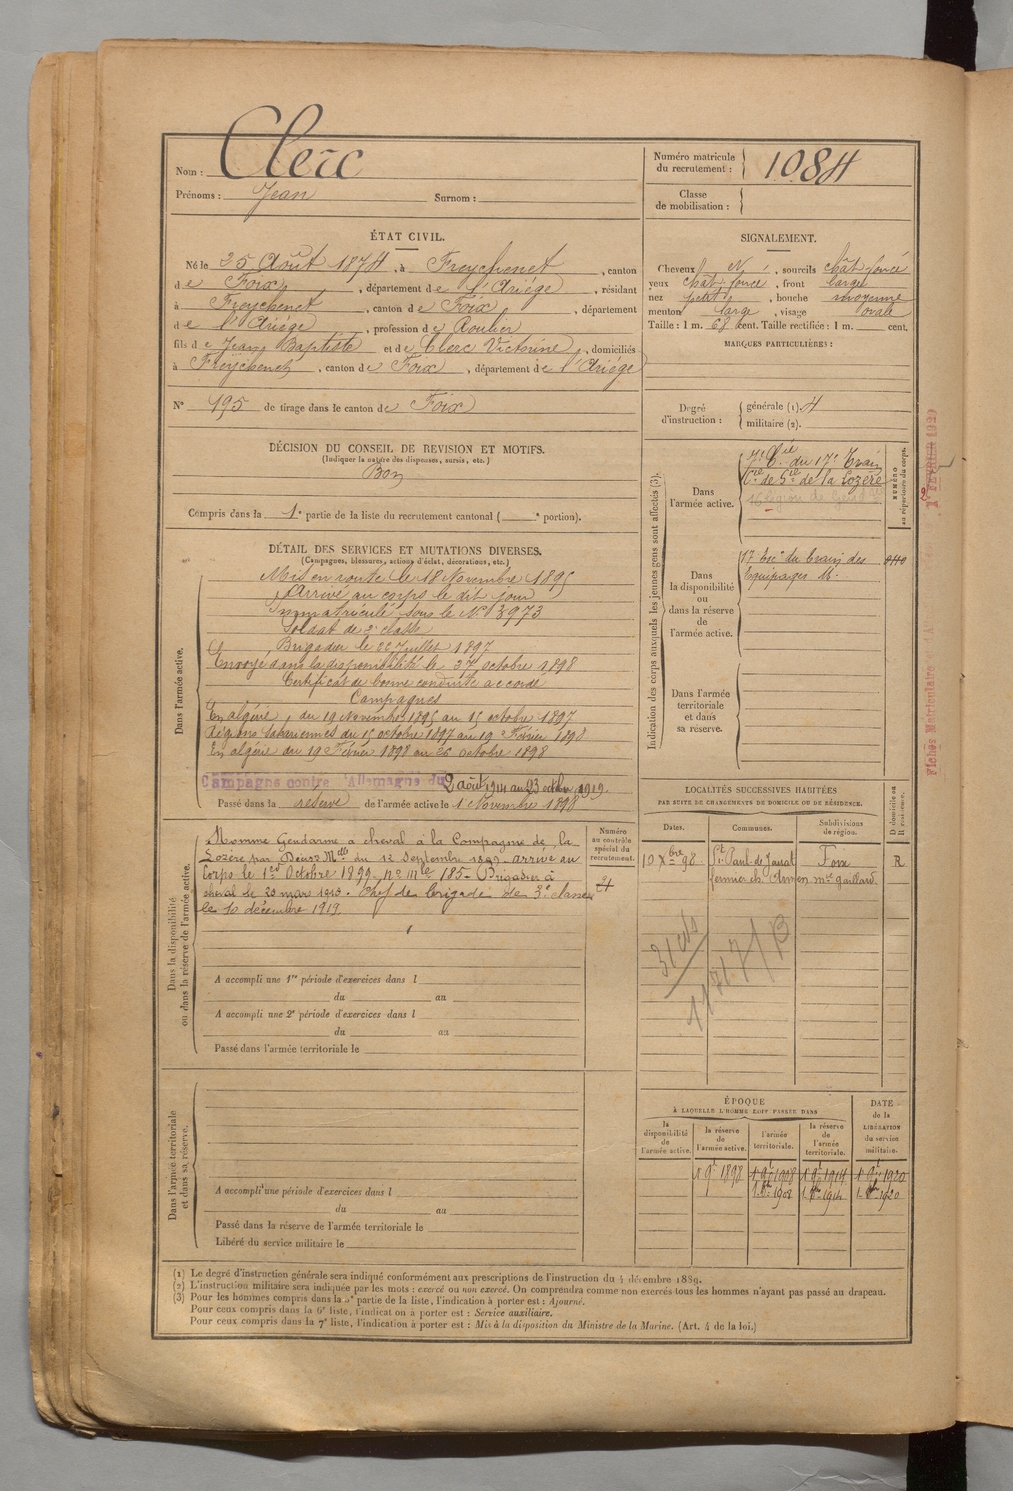 Nom : Clerc
Prénoms : Jean Surnom :
Numéro matricule du recrutement : 1084
Classe de mobilisation :
ÉTAT CIVIL.
Né le 25 Août 1874, à Freychenet, canton
de Foix, département de l'Ariége, résidant
à Freychenet, canton de Foix, département
de l'Ariége, profession de Roulier
fils de Jean Baptiste et de Clerc Victorine, domiciliés
à Freychenet, canton de Foix, département de l'Ariége
N° 195 de tirage dans le canton de Foix
SIGNALEMENT.
Cheveux N, sourcils chât foncé
yeux chât foncé, front large
nez petit, bouche moyenne
menton large, visage ovale
Taille : 1 m. 68 cent. Taille rectifiée : 1 m. cent.
MARQUES PARTICULIÈRES :
Degré d'instruction : générale (1). 4
militaire (2).
DÉCISION DU CONSEIL DE REVISION ET MOTIFS.
(Indiquer la nature des dispenses, sursis, etc.)
Bon
Compris dans la 1e partie de la liste du recrutement cantonal ( e portion).
DÉTAIL DES SERVICES ET MUTATIONS DIVERSES.
(Campagnes, blessures, actions d'éclat, décorations, etc.)
Dans l'armée active.
Mis en route le 18 Novembre 1895
Arrivé au corps le dit jour
immatriculé sous le N° 3973
Soldat de 2e classe
Brigadier le 22 Juillet 1897
Envoyé dans la disponibilité le 27 octobre 1898
Certificat de bonne conduite accordé
Campagnes
En algérie, du 19 Novembre 1895 au 15 octobre 1897
Régions sahariennes du 15 octobre 1897 au 19 Février 1898
En algérie du 19 Février 1898 au 26 octobre 1898
Campagne contre l'Allemagne du 2 août 1914 au 23 octobre 1919.
Passé dans la réserve de l'armée active le 1 Novembre 1898
Indication des corps auxquels les jeunes gens sont affectés (3).
Dans l'armée active.
7e Cie du 17e Train
Cie de Gie de la Lozère
16 Région de Gend
NUMÉRO au répertoire du corps.
Dans la disponibilité ou dans la réserve de l'armée active.
17 Esc. du train des
Equipages M.
Dans l'armée territoriale et dans sa réserve.
Dans la disponibilité ou dans la réserve de l'armée active.
Nommé Gendarme à cheval à la Compagnie de la
Lozère par Décon Mlle du 12 Septembre 1899 - arrivé au
Corps le 1er Octobre 1899, no mle 185. Brigadier à
cheval le 20 mars 1913. Chef de brigade de 3e classe
le 10 décembre 1919.
Numéro au contrôle spécial du recrutement.
A accompli une 1re période d'exercices dans l
du au
A accompli une 2e période d'exercices dans l
du au
Passé dans l'armée territoriale le
LOCALITÉS SUCCESSIVES HABITÉES
PAR SUITE DE CHANGEMENTS DE DOMICILE OU DE RÉSIDENCE.
Dates. Communes. Subdivisions de région. D domicile ou R résidence.
10 Xbre 98 St Paul de Jarrat Foix R
Dans l'armée territoriale et dans sa réserve.
A accompli une période d'exercices dans l
du au
Passé dans la réserve de l'armée territoriale le
Libéré du service militaire le
ÉPOQUE
À LAQUELLE L'HOMME DOIT PASSER DANS
la disponibilité de l'armée active. la réserve de l'armée active. l'armée territoriale. la réserve de l'armée territoriale.
DATE de la LIBÉRATION du service militaire.
1 9e 1898 1 9e 1908 1 9e 1914 1 9e 1920
(1) Le degré d'instruction générale sera indiqué conformément aux prescriptions de l'instruction du 4 décembre 1889.
(2) L'instruction militaire sera indiquée par les mots : exercé ou non exercé. On comprendra comme non exercés tous les hommes n'ayant pas passé au drapeau.
(3) Pour les hommes compris dans la 5e partie de la liste, l'indication à porter est : Ajourné.
Pour ceux compris dans la 6e liste, l'indication à porter est : Service auxiliaire.
Pour ceux compris dans la 7e liste, l'indication à porter est : Mis à la disposition du Ministre de la Marine. (Art. 4 de la loi.)